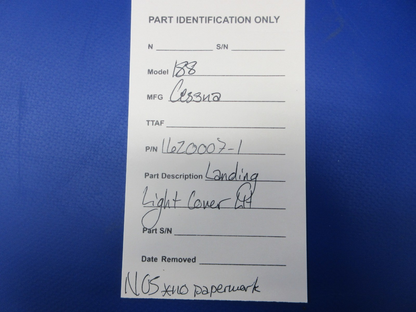 PART IDENTIFICATION ONLY
N S/N
Model 188
MFG Cessna
TTAF
P/N 1620007-1
Part Description Landing
Light Cover Kit
Part S/N
Date Removed
NOS *no paperwork